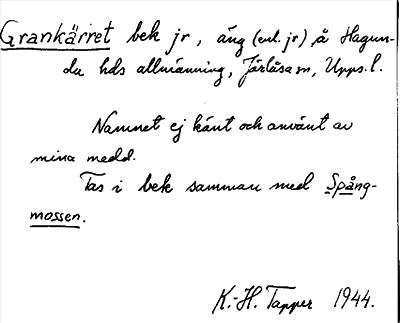 Grankärret bek jr, äng (enl. jr) å Hagun-
da hds allmänning, Järlåsa sn, Upps. l.
Namnet ej känt och använt av
mina medd.
Tas i bek samman med Spång-
mossen.
K.-H. Tapper 1944.